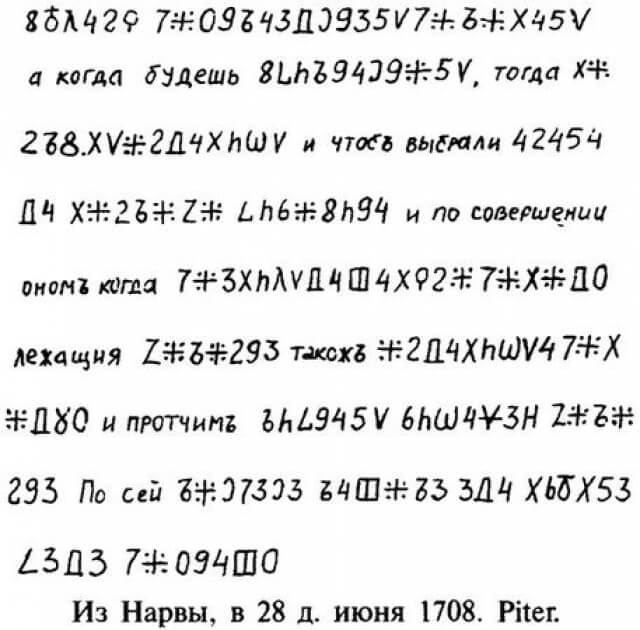 8δλ42♀ 7⁜09Ъ43ДƆ935V7⁜Ъ⁜X45V
а когда будешь 8LhЪ94Ɔ9⁜5V, тогда X⁜
2Ƃ8.XV⁜2Д4XhѠV и чтобъ выбрали 42454
Д4 X⁜2Ъ⁜Z⁜ Lh6⁜8h94 и по совершении
ономъ когда 7⁜3XhλVД4Ш4X♀2⁜7⁜X⁜ДO
лежащия Z⁜Ъ⁜293 такожъ ⁜2Д4XhѠV47⁜X
⁜ДƔO и протчимъ ЪhL945V 6hѠ4¥3H Z⁜Ъ⁜
293 По сей Ъ⁜Ɔ73Ɔ3 Ъ4Ш⁜Ƃ3 3Д4 XЪƂX53
L3Д3 7⁜094ШO
Из Нарвы, в 28 д. июня 1708. Piter.